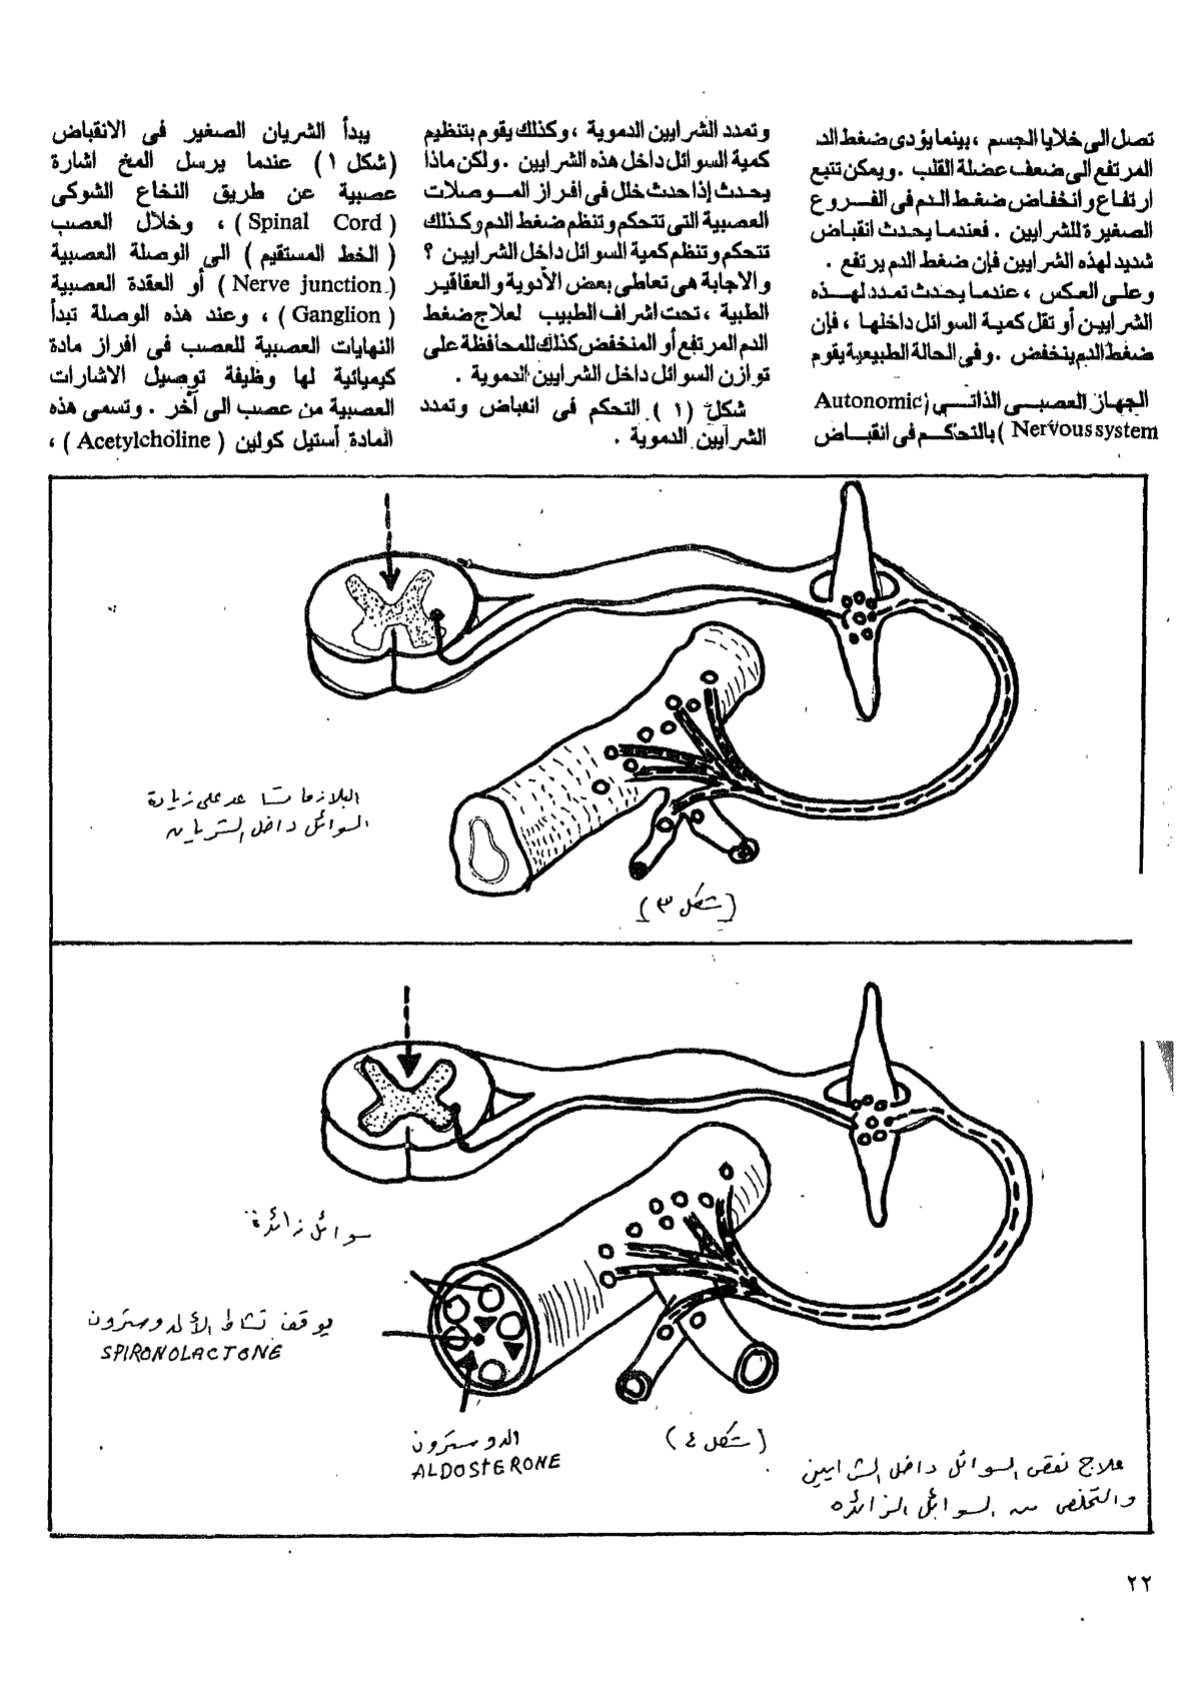 تصل الى خلايا الجسم ، بينما يؤدى ضغط الد
المرتفع الى ضعف عضلة القلب . ويمكن تتبع
ارتفاع وانخفاض ضغط الدم فى الفروع
الصغيرة للشرايين . فعندما يحدث انقباض
شديد لهذه الشرايين فإن ضغط الدم يرتفع .
وعلى العكس ، عندما يحدث تمدد لهذه
الشرايين أو تقل كمية السوائل داخلها ، فإن
ضغط الدم ينخفض . وفى الحالة الطبيعية يقوم
الجهاز العصبى الذاتى ( Autonomic
Nervous system ) بالتحكم فى انقباض
وتمدد الشرايين الدموية ، وكذلك يقوم بتنظيم
كمية السوائل داخل هذه الشرايين . ولكن ماذا
يحدث إذا حدث خلل فى افراز الموصلات
العصبية التى تتحكم وتنظم ضغط الدم وكذلك
تتحكم وتنظم كمية السوائل داخل الشرايين ؟
والاجابة هى تعاطى بعض الأدوية والعقاقير
الطبية ، تحت اشراف الطبيب لعلاج ضغط
الدم المرتفع أو المنخفض كذلك للمحافظة على
توازن السوائل داخل الشرايين الدموية .
شكل ( ١ ) التحكم فى انقباض وتمدد
الشرايين الدموية .
يبدأ الشريان الصغير فى الانقباض
(شكل ١ ) عندما يرسل المخ اشارة
عصبية عن طريق النخاع الشوكى
( Spinal Cord ) ، وخلال العصب
( الخط المستقيم ) الى الوصلة العصبية
( Nerve junction ) أو العقدة العصبية
( Ganglion ) ، وعند هذه الوصلة تبدأ
النهايات العصبية للعصب فى افراز مادة
كيميائية لها وظيفة توصيل الاشارات
العصبية من عصب الى أخر . وتسمى هذه
المادة أستيل كولين ( Acetylcholine ) ،
البلازما تساعد على زيادة
السوائل داخل الشريان
(شكل ٣)
سوائل زائدة
يوقف نشاط الألدوسترون
SPIRONOLACTONE
الدوسترون
ALDOSTERONE
(شكل ٤)
علاج نقص السوائل داخل الشرايين
والتخلص من السوائل الزائده
٢٢